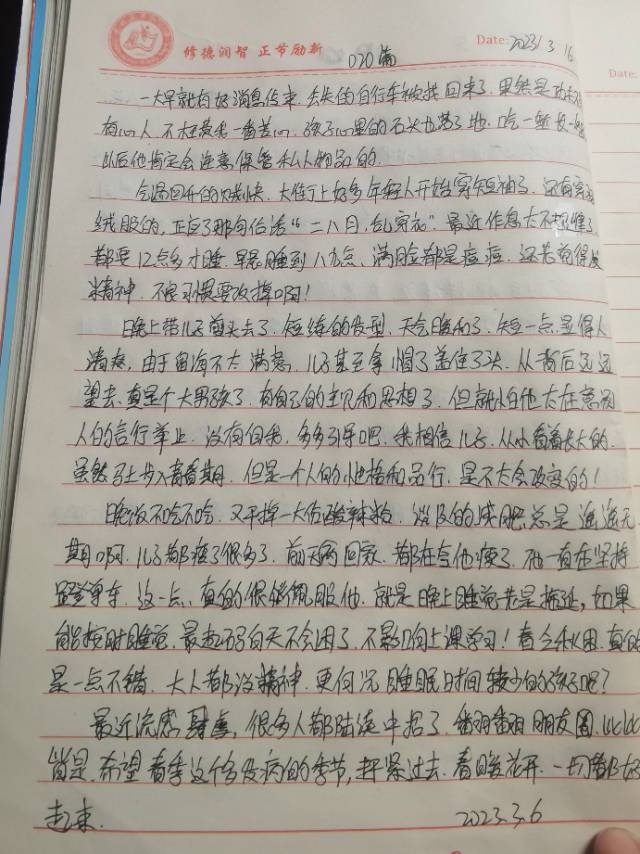 修德润智 正节励新
Date: 2023.3.16
020篇
一大早就有好消息传来,丢失的自行车被找回来了,果然是功夫不
有心人,不枉费我一番苦心,孩子心里的石头也落了地,吃一堑长一
以后他肯定会注意保管私人物品的.
气温回升的贼快,大街上好多年轻人开始穿短袖了,还有穿
绒服的,正应了那句俗话“二八月,乱穿衣”.最近作息太不规律了
都要12点多才睡,早晨睡到八九点,满脸都是痘痘,还总觉得没
精神,不良习惯要改掉啊!
晚上带儿子剪头去了,短练的发型,天气暖和了,短一点显得人
清爽,由于留海不太满意,儿子甚至拿帽子盖住了头,从背后远远
望去,真是个大男孩了,有自己的主见和思想了,但就怕他太在意别
人的言行举止,没有自我,多多引导吧,我相信儿子,从小看着长大的
虽然马上步入青春期,但是一个人的性格和品行,是不大会改变的!
晚饭不吃不吃,又干掉一大份酸辣粉,说及的减肥总是遥遥无
期啊,儿子都瘦了很多了,前两回家,都在夸他瘦了,他一直在坚持
蹬单车,这一点,真的很佩服他,就是晚上睡觉老是拖延,如果
能按时睡觉,最起码白天不会困了,不影响上课学习!春乏秋困,真的
是一点不错,大人都没精神,更何况睡眠时间较少的孩子呢?
最近流感肆虐,很多人都陆续中招了,翻翻朋友圈,比比
皆是,希望春季这个多发病的季节,赶紧过去,春暖花开,一切都好
起来.
2023.3.6
Date: